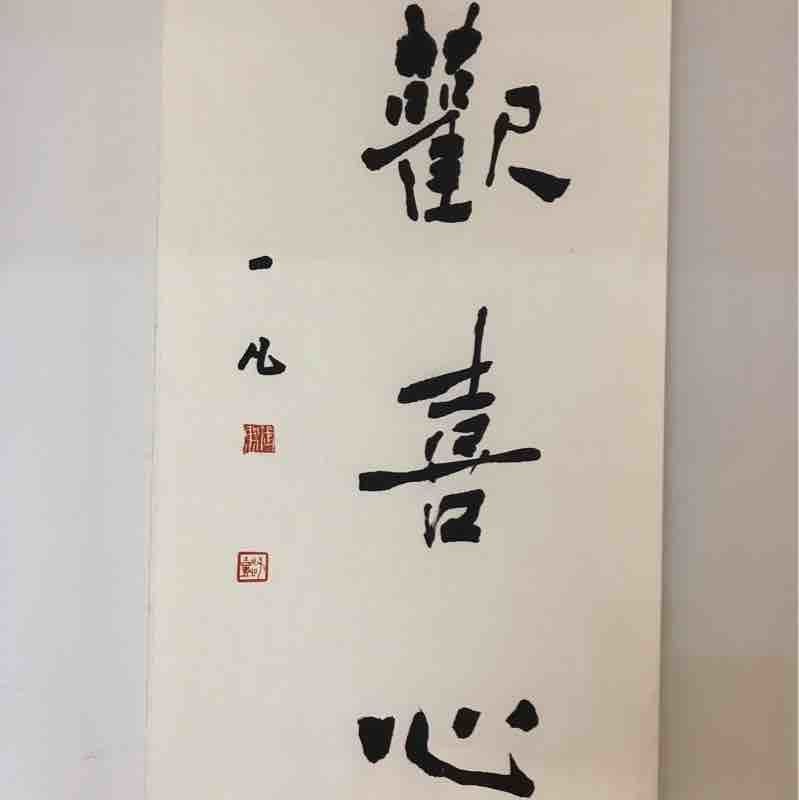 歡喜心
一凡